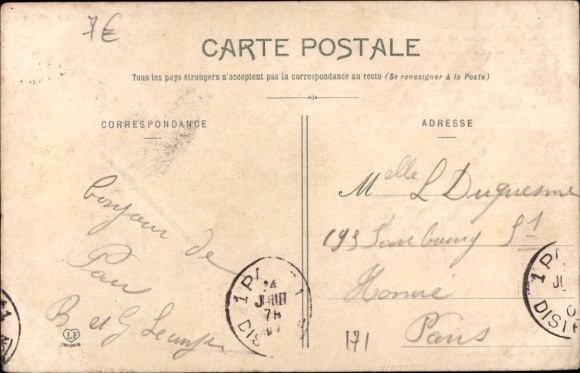 7€
CARTE POSTALE
Tous les pays étrangers n'acceptent pas la correspondance au recto (Se renseigner à la Poste)
CORRESPONDANCE
ADRESSE
bonjour de
Pau
B et G
Melle L Duquesne
193 Faubourg St
Honoré
Paris
171
LF
1 P
24
JUIN
DIS
1 P
DISTR